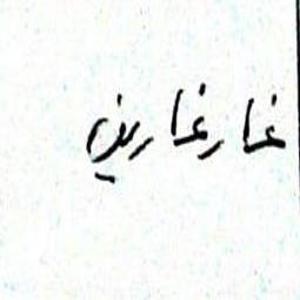 غارغارين